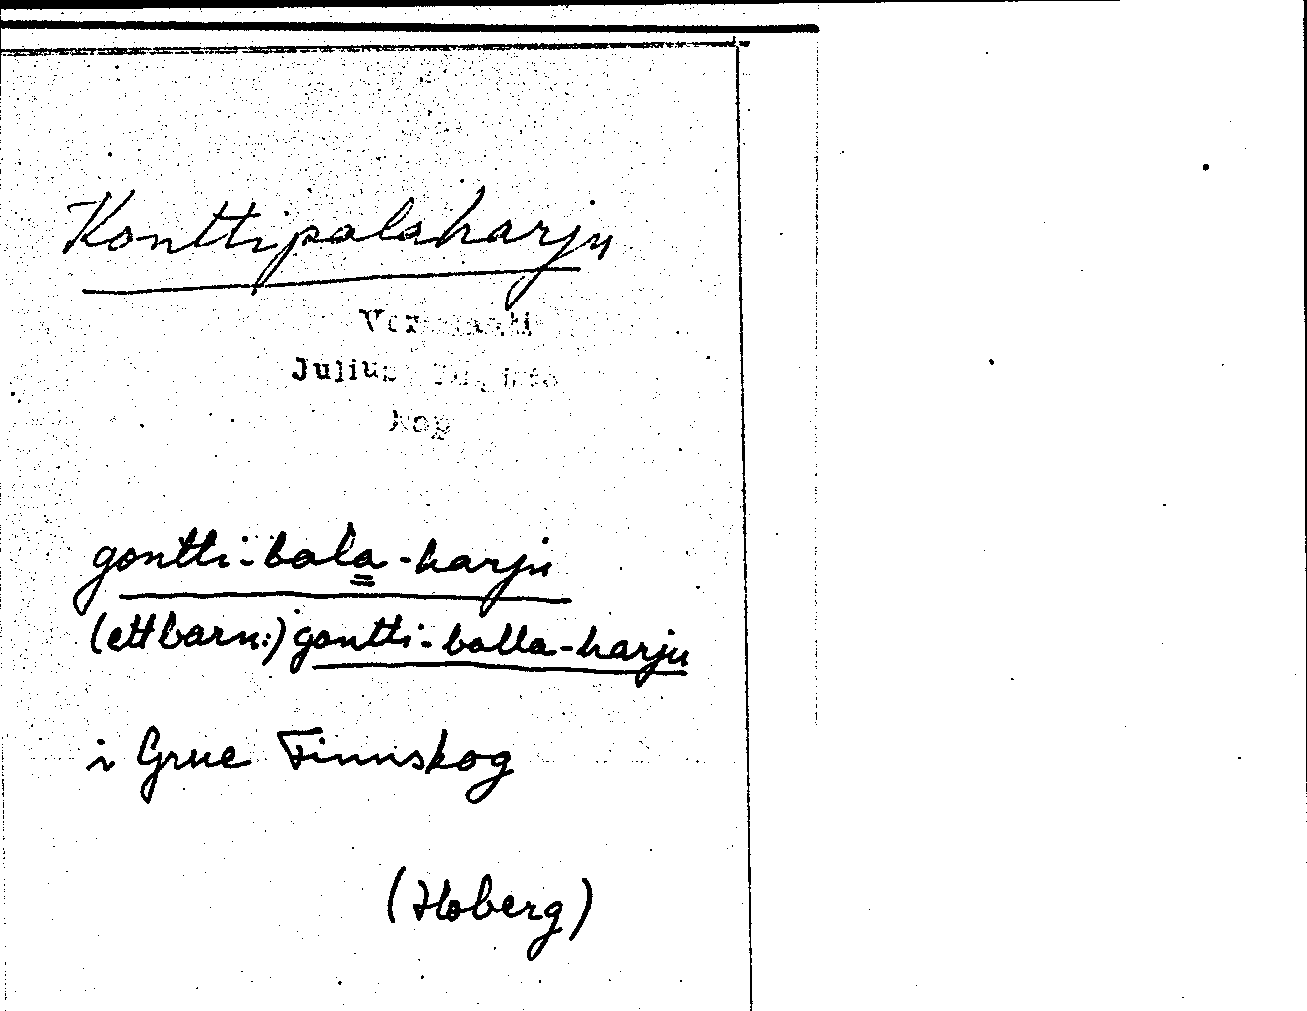 Konttipalaharju
Julius
kop
gontti-bala-harju
(ett barn:) gontti-balla-harju
i Grue Finnskog
(Hoberg)